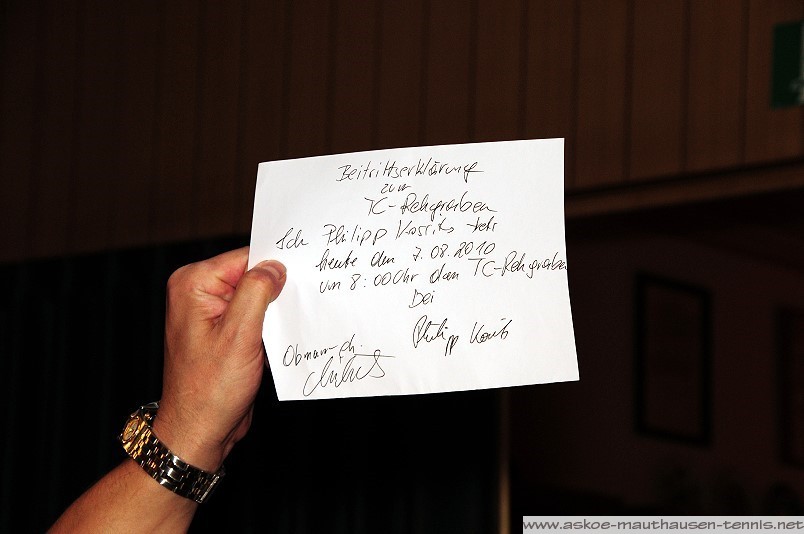 Beitrittserklärung
zum
TC-Rehgraben
Ich Philipp tritt
heute den 7.08.2010
um 8:00Uhr dem TC-Rehgraben
Bei
Philipp
Obmann
www.askoe-mauthausen-tennis.net